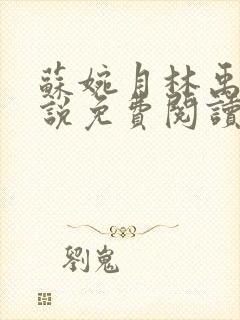 蘇婉月林禹
說免費閱讀
劉嵬